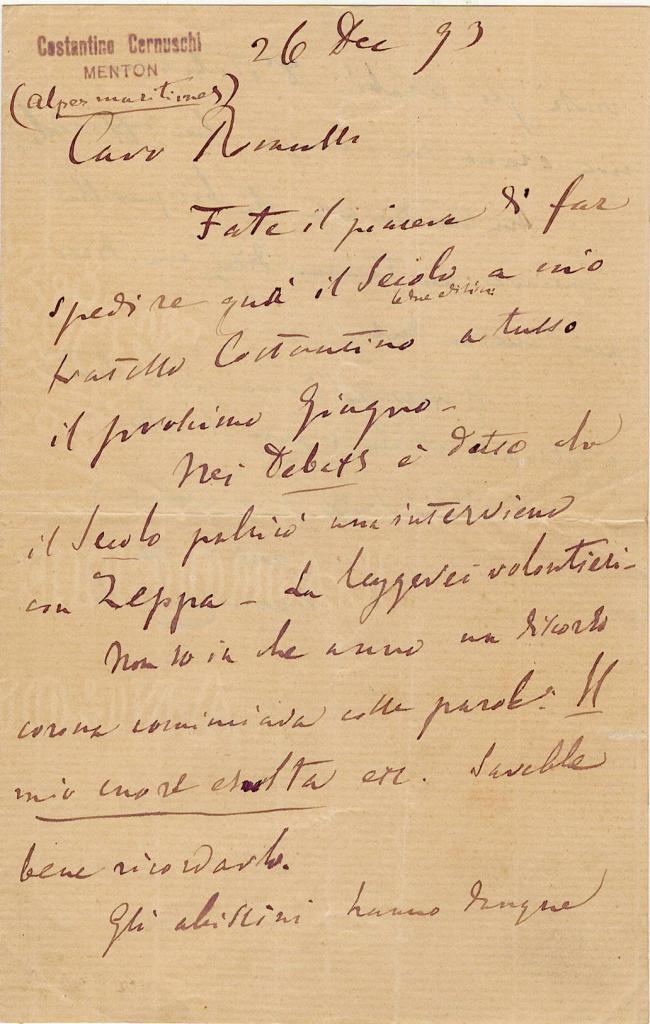 Costantino Cernuschi
MENTON
26 Dec 93
(alpes maritimes)
Caro Romussi
Fate il piacere di far
spedire quà il Secolo a mio
le due edizioni
fratello Costantino a tutto
il prohimo Giugno -
Nei Debats è detto che
il Secolo publicò una interview
con Zeppa - La leggerei volontieri -
Non so in che anno un discorso
corona cominciava colle parole: Il
mio cuore esulta etc. Sarebbe
bene ricordarlo.
Gli abissini hanno dunque